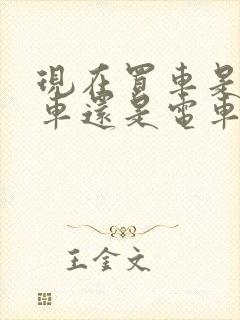 現在買車是
車還是電車
王金文